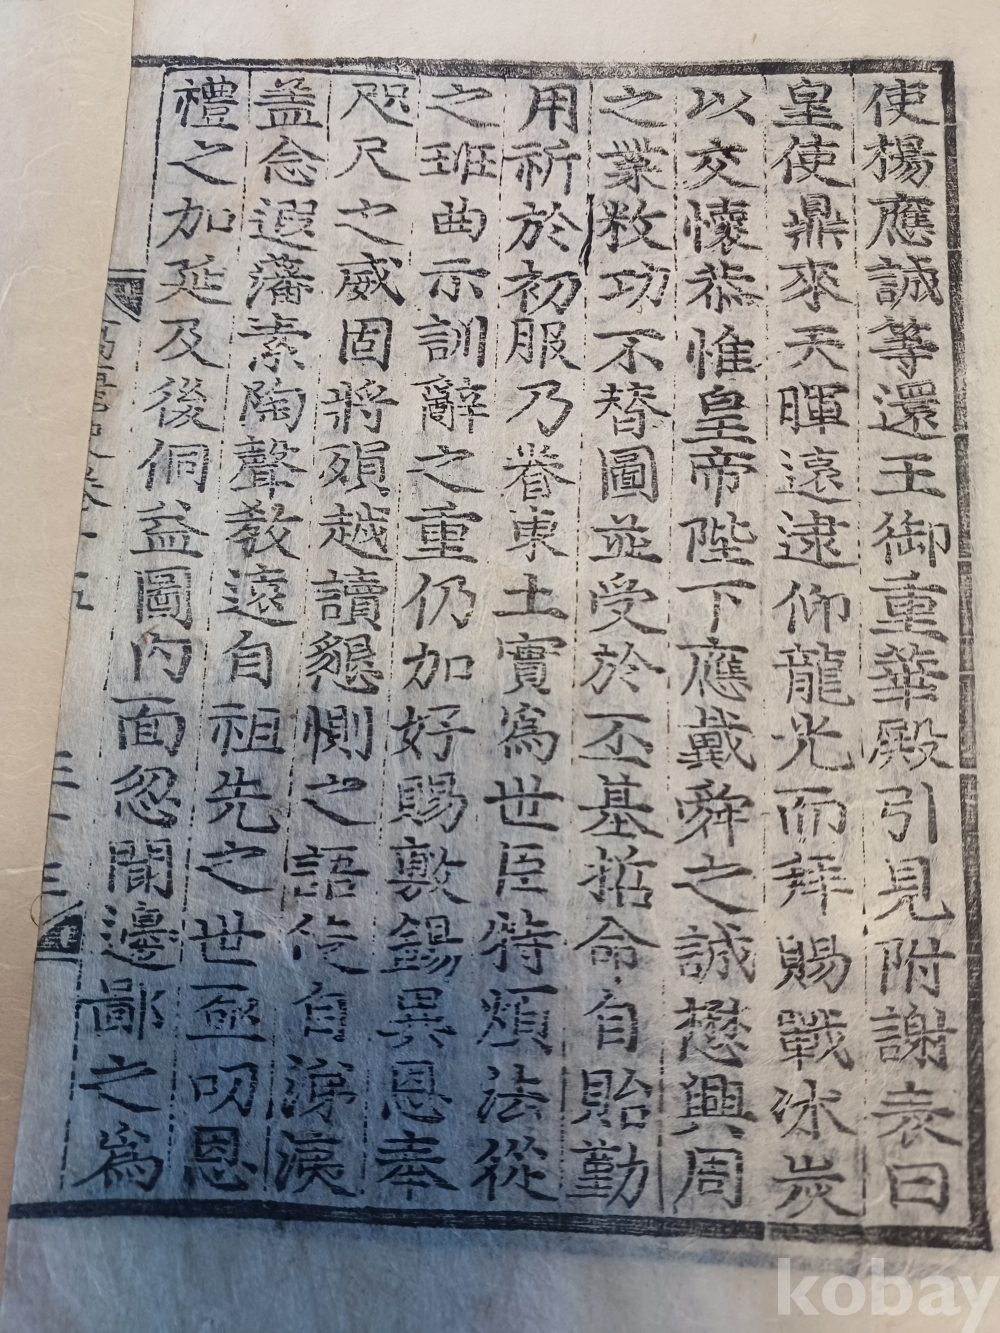 使楊應誠等還王御重華殿引見附謝表曰
皇使鼎來天暉遠逮仰龍光而拜賜戰冰炭
以交懷恭惟皇帝陛下應戴舜之誠懋興周
之業敉功不替圖並受於丕基哲命自貽勤
用祈於初服乃眷東土實爲世臣特煩法從
之班曲示訓辭之重仍加好賜敷錫異恩奉
咫尺之威固將殞越讀懇惻之語作自涕洟
盖念遐藩素陶聲敎遠自祖先之世亟叨恩
禮之加延及後侗益圖內面忽聞邊鄙之爲
高麗史卷十五
三十三
kobay